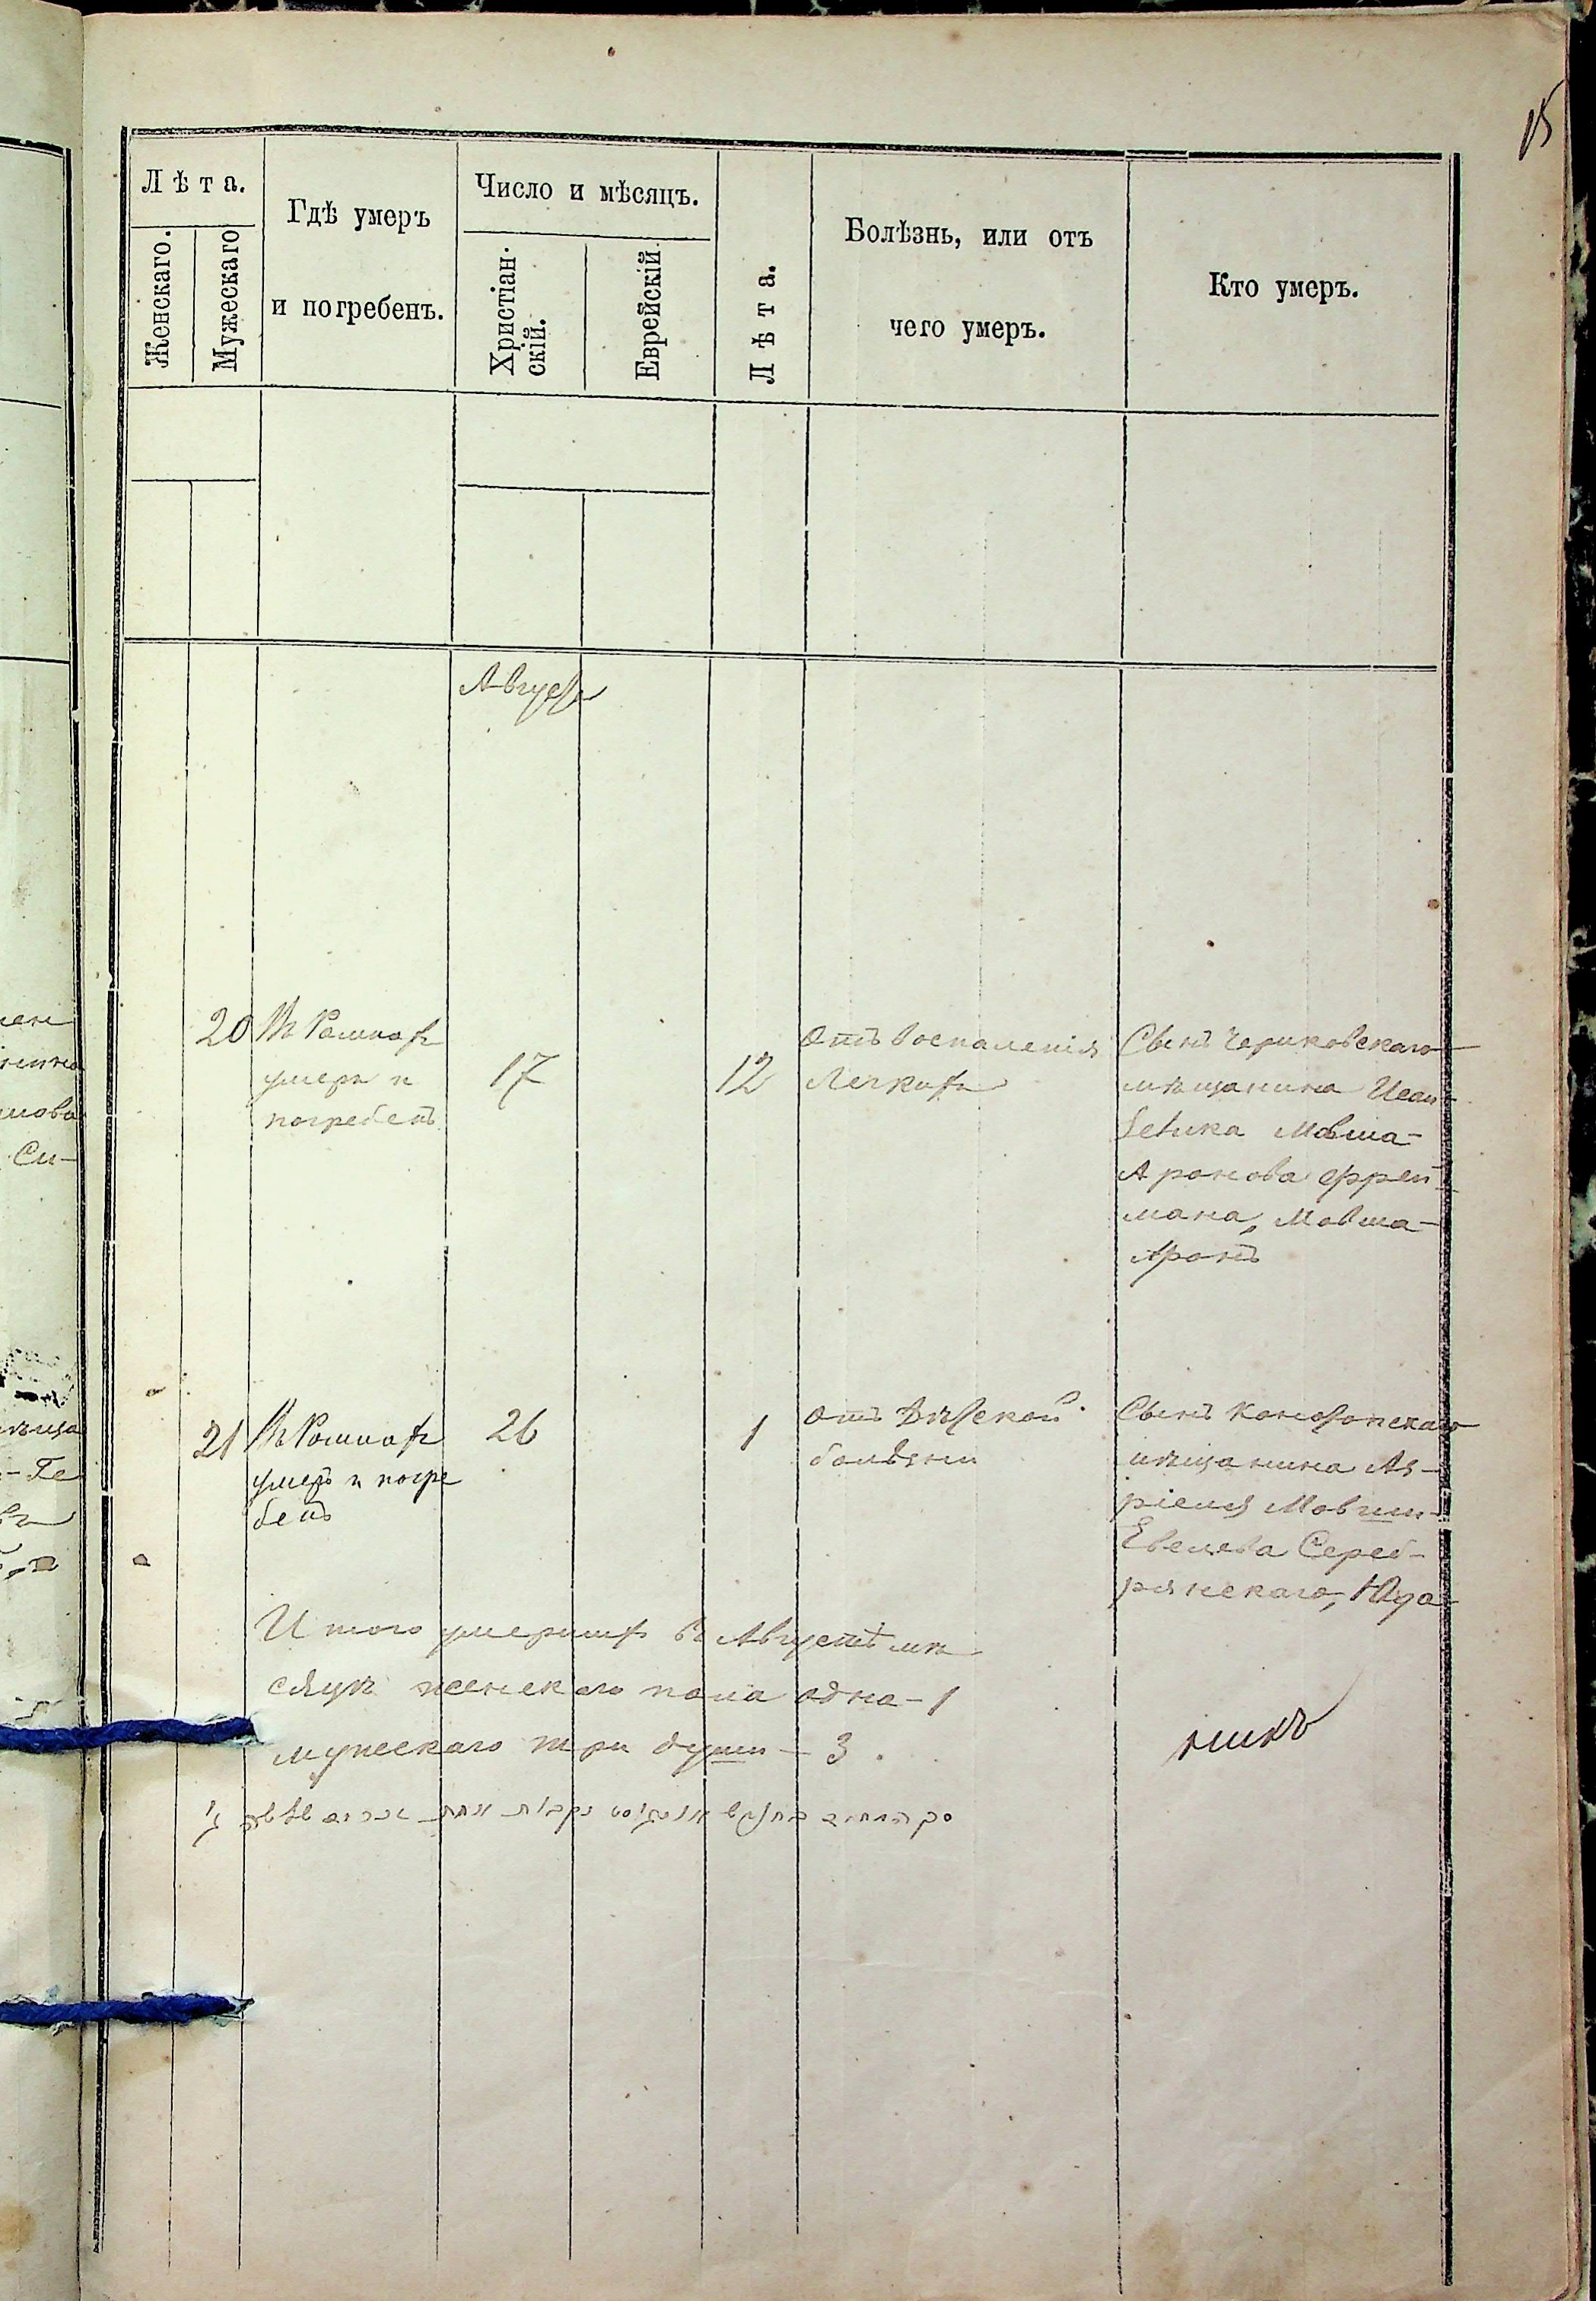 15
Лѣта.
Женскаго.
Мужескаго
Гдѣ умеръ
и погребенъ.
Число и мѣсяцъ.
Христіан-
скій.
Еврейскій.
Лѣта.
Болѣзнь, или отъ
чего умеръ.
Кто умеръ.
Августа
20
Въ Ромнахъ
умеръ и
погребенъ
17
12
Отъ воспаленія
Легкихъ
Сынъ Чериковскаго
мѣщанина
Мовша-
Аронова Фрей-
мана, Мовша-
Аронъ
21
Въ Ромнахъ
умеръ и погре
бенъ
26
1
Отъ Дѣтской
болѣзни
Сынъ Конотопскаго
мѣщанина
Мовши-
Евелева Сереб-
рянскаго, Юда
Итого умершихъ въ Августѣ мѣ
сяцѣ женскаго пола одна - 1
мужескаго три души - 3.